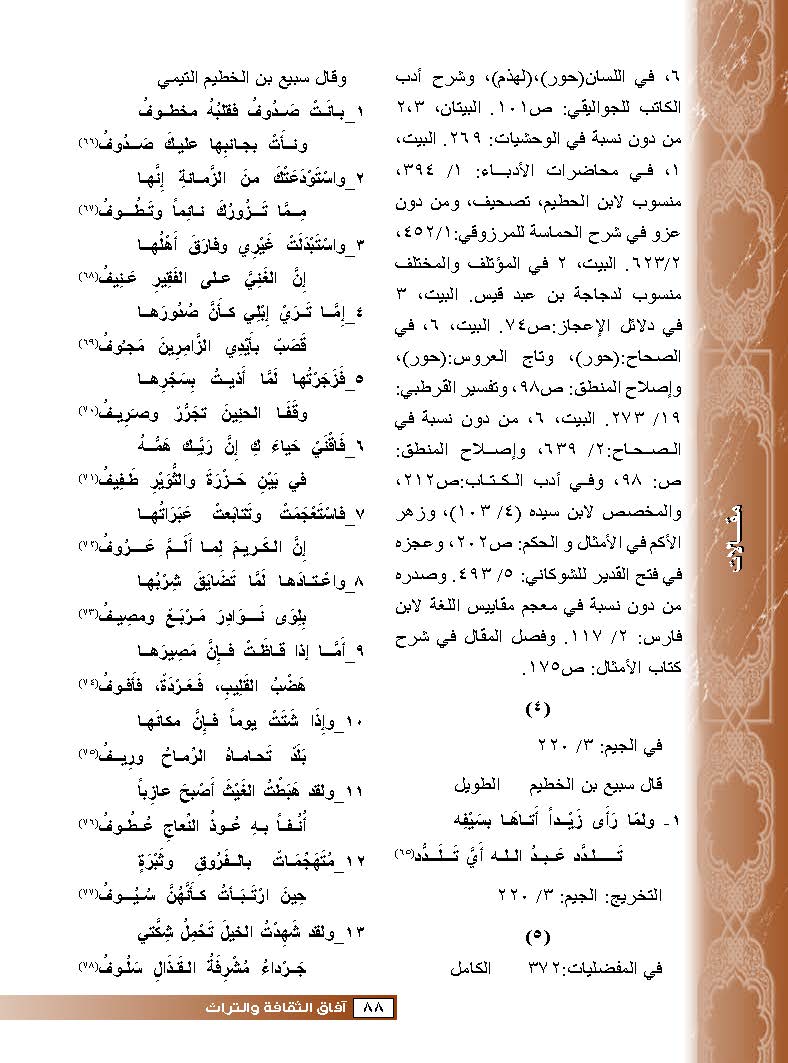 ٦، في اللسان(حور)،(لهذم)، وشرح أدب
الكاتب للجواليقي: ص١٠١. البيتان، ٢،٣
من دون نسبة في الوحشيات: ٢٦٩. البيت،
١، فـي محاضرات الأدبــاء: ١/ ٣٩٤،
منسوب لابن الحطيم، تصحيف، ومن دون
عزو في شرح الحماسة للمرزوقي:٤٥٢/١،
٦٢٣/٢. البيت، ٢ في المؤتلف والمختلف
منسوب لدجاجة بن عبد قيس. البيت، ٣
في دلائل الإعجاز:ص٧٤. البيت، ٦، في
الصحاح:(حور)، وتاج العروس:(حور)،
وإصلاح المنطق: ص٩٨، وتفسير القرطبي:
١٩/ ٢٧٣. البيت، ٦، من دون نسبة في
الـصـحاح:٢/ ٦٣٩، وإصــلاح المنطق:
ص: ٩٨، وفـي أدب الـكـتـاب:ص٢١٢،
والمخصص لابن سيده (٤/ ١٠٣)، وزهر
الأكم في الأمثال و الحكم: ص٢٠٢، وعجزه
في فتح القدير للشوكاني: ٥/ ٤٩٣. وصدره
من دون نسبة في معجم مقاييس اللغة لابن
فارس: ٢/ ١١٧. وفصل المقال في شرح
كتاب الأمثال: ص١٧٥.
(٤)
في الجيم: ٣/ ٢٢٠
قال سبيع بن الخطيم الطويل
١- ولمّا رَأَى زَيْــداً أَتـاهَـا بسَيْفِه
تَـــلدَّد عَـبـدُ الـلـه أَيَّ تَــلَــدُّد(٦٥)
التخريج: الجيم: ٣/ ٢٢٠
(٥)
في المفضليات:٣٧٢ الكامل
وقال سبيع بن الخطيم التيمي
١_بـانَـتْ صَـدُوفُ فقلبُهُ مخطـوفُ
ونــأَتْ بجـانبِها عليـكَ صَــدُوفُ(٦٦)
٢_واسْتَوْدَعَتْكَ منَ الزَّمـانةِ إنَّهـا
مِــمَّا تَــزُورُكَ نـائِماً وتَـطُـوفُ(٦٧)
٣_واسْتَبْدَلَتْ غَيْرِي وفارَقَ أَهْلُهـا
إنَّ الغَنِيَّ عـلى الفَقِيرِ عَـنِيفُ(٦٨)
٤_إمَّـا تَـرَيْ إبْلِي كـأَنَّ صُدُورَهـا
قَصَبٌ بأَيْدِي الزَّامِرِينَ مَجُوفُ(٦٩)
٥_فَزَجَرْتُها لَمَّا أَذيـتُ بِسَجْرِهـا
وقَفَـا الحنِينَ تجَرُّرٌ وصرَيـفُ(٧٠)
٦_فَاقْنَيْ حَياءَ كِ إنَّ رَبَّـك هَمُّـهُ
في بَيْنِ حَـزْرَةَ والثُّوَيْرِ طَفِيفُ(٧١)
٧_فاسْتَعْجَمَتْ وتَتابَعتْ عَبَرَاتُهـا
إنَّ الكَـريمَ لِمـا أَلَــمَّ عَــرُوفُ(٧٢)
٨_واعْـتـادَهـا لَمَّا تَضَايَقَ شِرْبُهـا
بِلِوَى نَــوَادِرَ مَـرْبَـعٌ ومصِيـفُ(٧٣)
٩_أَمَّــا إذا قـاظَـتْ فـإنَّ مَصِيرَهـا
هَضْبُ القَلِيبِ، فَـعَـرْدَةٌ، فأَفـوفُ(٧٤)
١٠_وإِذَا شَتَتْ يوماً فـإنَّ مكانَهـا
بَلَدٌ تَحامـاهُ الرْمـاحُ ورِيــفُ(٧٥)
١١_ولقد هَبَطْتُ الغَيْثَ أَصْبحَ عازِباً
أُنُـفـاً بـهِ عُـوذُ النّعاجِ عُـطُـوفُ(٧٦)
١٢_مُتَهَجِّمَـاتٌ بالـفَـرُوقِ وثَبْرَةٍ
حِينَ ارْتَـبَـأتُ كـأَنَّهُنَّ سُـيُــوفُ(٧٧)
١٣_ولقد شَهِدْتُ الخيلَ تَحْمِلُ شِكَّتي
جَـرْداءُ مُشْرِفَةُ الـقَـذَالِ سَلُوفُ(٧٨)
مقـــالات
٨٨ آفاق الثقافة والتراث